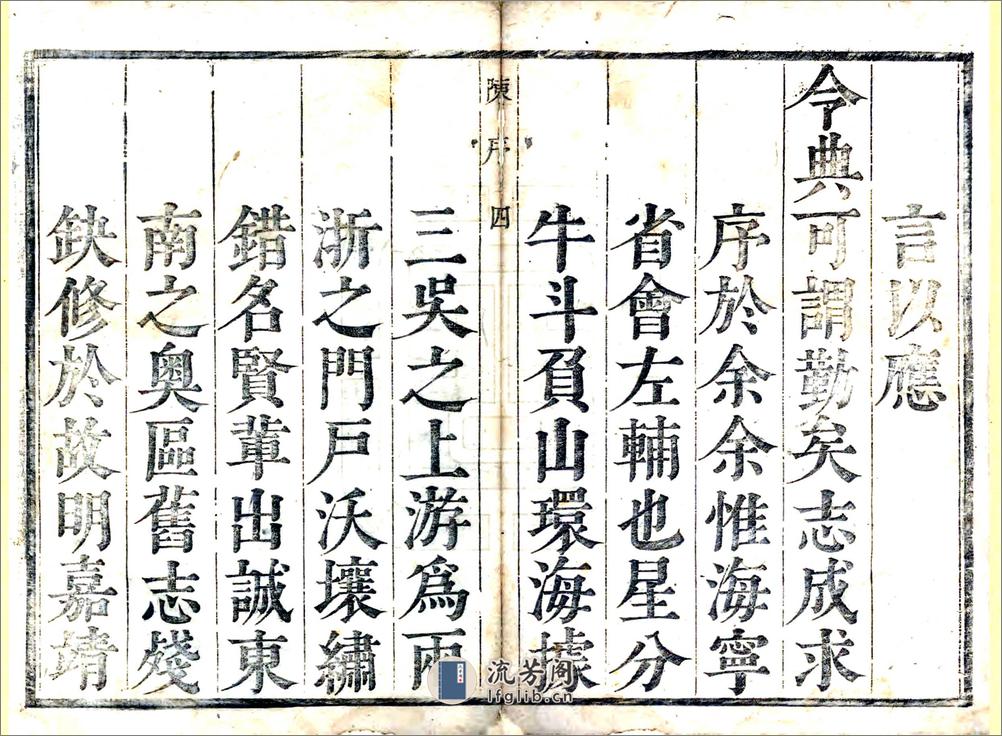 言以應
令典可謂勤矣志成求
序於余余惟海寧
省會左輔也星分
牛斗負山環海據
陳序 四
三吳之上游爲兩
浙之門戶沃壤繡
錯名賢輩出誠東
南之奧區舊志殘
缺修於故明嘉靖
流芳阁
lfglib.cn